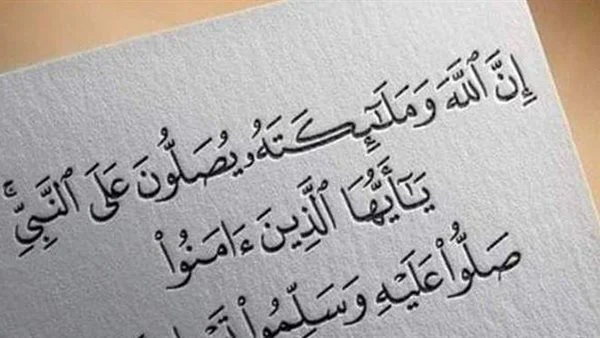 إِنَّ ٱللَّهَ وَمَلَـٰٓئِكَتَهُۥ يُصَلُّونَ عَلَى ٱلنَّبِىِّ ۚ
يَـٰٓأَيُّهَا ٱلَّذِينَ ءَامَنُوا۟
صَلُّوا۟ عَلَيْهِ وَسَلِّمُوا۟